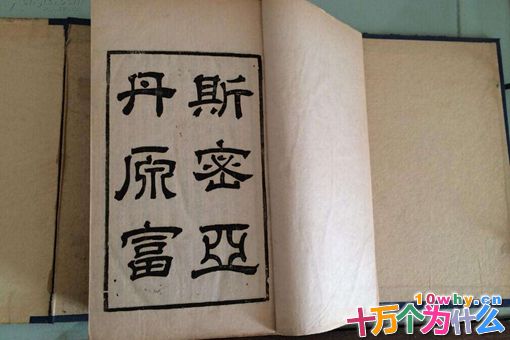 斯密亞
丹原富
10why.cn
十万个为什么